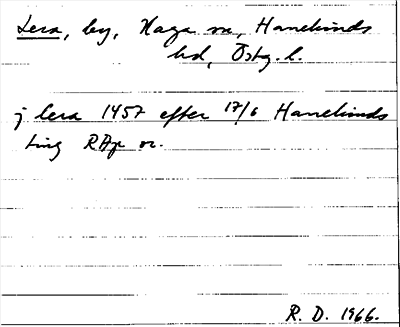 Lera, by, Haga sn, Hanekinds
hd, Östg. l.
j lera 1457 efter 17/6 Hanekinds
ting RAp or.
R. D. 1966.